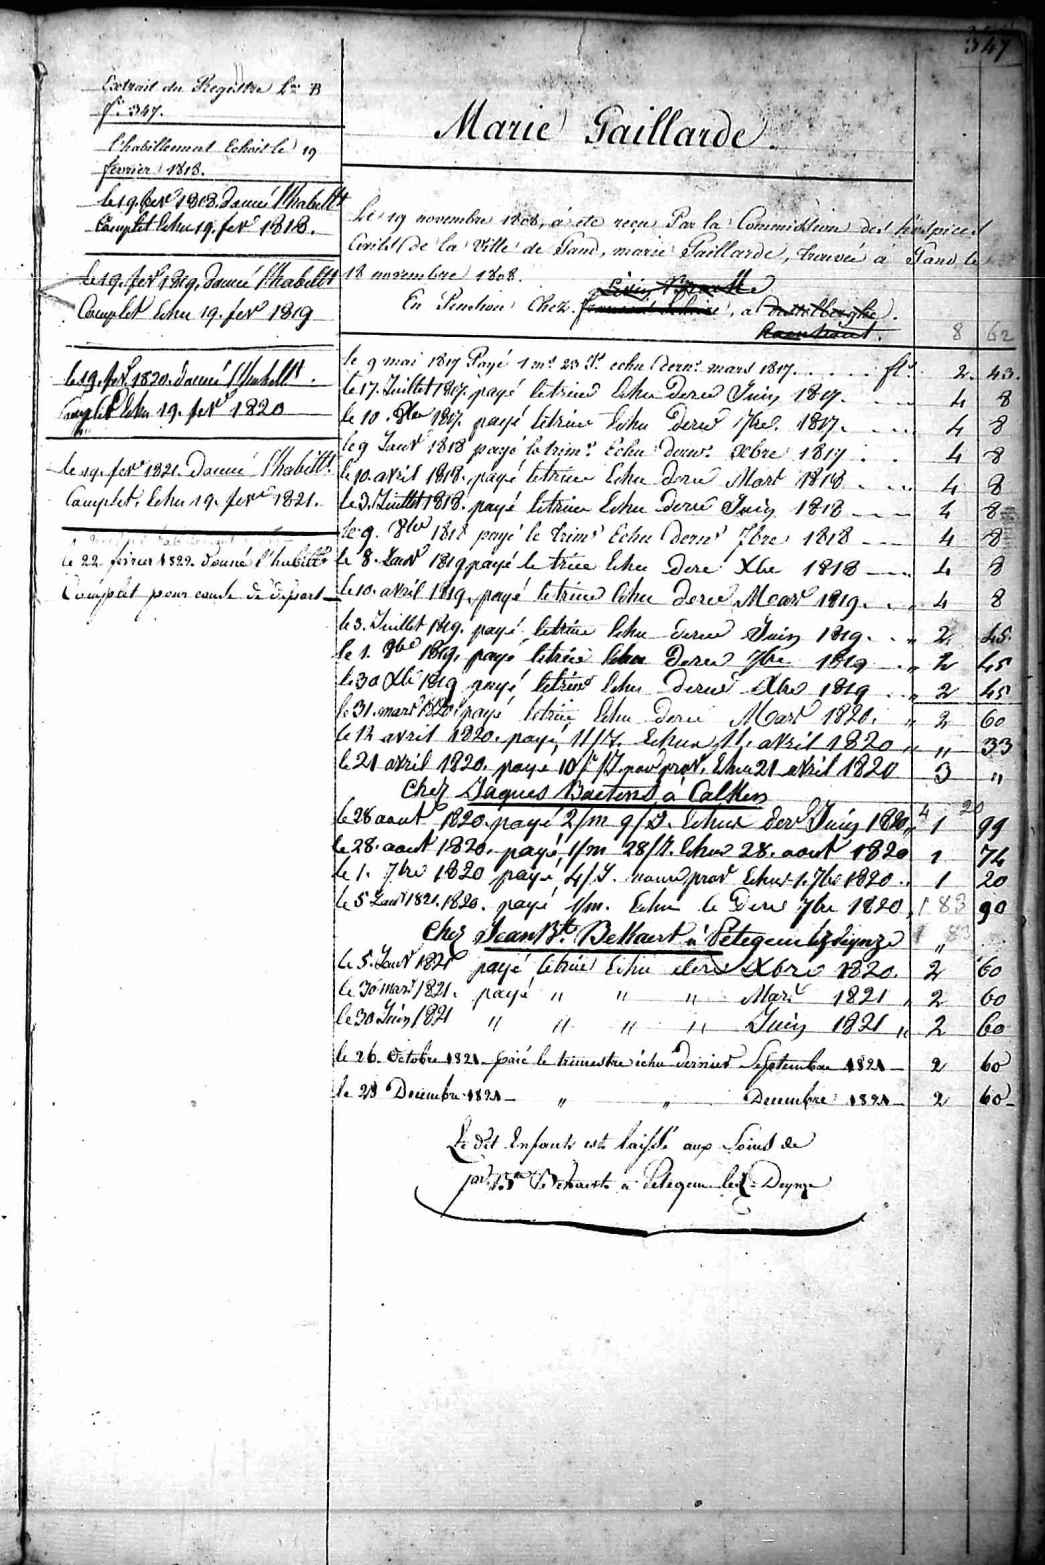 347
Extrait du Registre Lre B
fo 347.
l'habillement Echoit le 19
fevrier 1818.
le 19 fevr 1818. donné l'habellt
Complet Echu 19. fevr 1818.
le 19. fevr 1819. donné l'habellt
Complet Echu 19. fevr 1819
le 19. fevr 1820. donné l'habellt.
Complet Echu 19. fevr 1820
le 19. fevr 1821. donné l'habillt.
Complet, Echu 19. fevr 1821.
le 22 fevrier 1822. donné l'habillt
Complet pour cause de départ
Marie Gaillarde
Le 19 novembre 1808, à été recu Par la Commission des hospices
Civils de la Ville de Gand, marie Gaillarde, trouvée à Gand le
18 novembre 1808.
En Pension Chez , a
8 62
le 9 mai 1817 Payé 1 ms 23 Js echu dernr mars 1817 . . . . . fls 2. 43.
le 17. Juillet 1817. payé letrime Echu derne Juin 1817. 4 8
le 10. 8bre 1817. payé letrime Echu derne 7bre. 1817. 4 8
le 9 Janvr 1818 payé le trimr. Echu dernr. Xbre 1817 . . . 4 8
le 10. avril 1818. payé letrime Echu derne Mars 1818 4 8
le 3. Juillet 1818. payé letrime Echu derne Juin 1818 4 8
le 9. 8bre 1818 payé le trims Echu derns 7bre 1818 4 8
le 8. Janvr 1819 payé le trime Echu derne Xbre 1818 4 8
le 10. avril 1819. payé letrime Echu derne Mars 1819. „ 4 8
le 3. Juillet 1819. payé, letrime Echu derne Juin 1819. „ 2 45.
le 1. 8bre 1819. payé letrime Echu Derne 7bre 1819 „ 2 45
le 30 Xbre 1819 payé letrime Echu derne Xbre 1819 „ 2 45
le 31. mars 1820 payé letrime Echu derne Mars 1820. „ 2 60
le 12 avril 1820. payé, 11/J. Echus 11. avril 1820 „ „ 33
le 21 avril 1820. payé 10 /J. pour prov. Echu 21 avril 1820 3 „
Chez Jaques Baetens, à Calken
4 20
le 28 aout 1820. payé 2/m 9/J. Echus derne Juin 1820 „ 1 99
le 28. aout 1820. payé, 1/m 28/J. Echus 28. aout 1820 1 74
le 1. 7bre 1820 payé 4/J. prov Echus 1. 7bre 1820 . . 1 20
le 5 Janvr 1821. 1820. payé 1/m. Echu le Derne 7bre 1820 „ 90
1 83
Chez Jean Bte Bekaert à Petegem lez Deynze „
le 5. Janvr 1821 payé letrime Echu derne Xbre 1820. 2 60
le 30 mars 1821. payé „ „ „ Mars 1821 „ 2 60
le 30 Juin 1821 „ „ „ „ Juin 1821 „ 2 60
le 26. Octobre 1821 – paié le trimestre échu dernier Septembre 1821 – 2 60
le 28 Decembre 1821 – „ „ Decembre 1821 – 2 60 –
Le dit Enfant est laissé aux Soins de
Bte Bekaert à Petegem lez Deynze